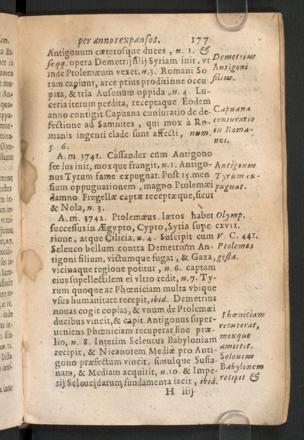 per annos expansos. 177
Antigonum cæterosque duces, n. 1. &
seqq. opera Demetrij filij Syriam init, vt
inde Ptolemæum vexet. n. 3. Romani So
ram capiunt, arce prius proditione occu
pita, & tria Ausonum oppida, n. 4. Lu-
ceria iterum perdita, receptaque Eodem
anno contigit Capuana coniuratio de de-
fectione ad Samnites, qui mox à Ro-
manis ingenti clade sunt affecti, num.
5. 6.
A.m 3741. Cassander cum Antigono
fœdus init, mox frangit, n. 1. Antigo-
nus Tyrum fame expugnat. Post 15. men
sium oppugnationem, magno Ptolemæi
damno Fregellæ captæ receptæque, sicut
& Nola, n. 3.
A.m. 3742. Ptolemæus lætos habet
successus in Ægypto, Cypro, Sytia supe
riore, atque Cilicia, n. 4. Suscipit cum
Seleuco bellum contra Demetrium An-
tigoni filium, victumque fugat; & Gaza,
vicinaque regione potitur, n. 6. captam
eius supellectilem ei vltro reddit, n. 7. Ty-
rum quoque ac Phœniciam multa vbique
vsus humanitate recepit, ibid. Demetrius
nouas cogit copias, & vnum de Ptolemæi
ducibus vincit, & capit Antigonus super-
ueniens Phœniciam recuperat sine præ-
lio, n. 8. Interim Seleucus Babyloniam
recipit, & Nicanorem Mediæ pro Anti-
gono præfectum vincit, simulque Susia-
nam, & Mediam acquirit, n. 10. & Impe
rij Seleucidarum fundamenta iacit, ibid.
H iiij
Demetrius
Antigoni
filius.
Capuana
coniuratio
in Roma-
nos.
Antigonus
Tyrum ex-
pugnat.
Olymp.
cxvii.
V. C. 441.
Ptolemæi
gesta.
Phœniciam
recuperat,
moxque
amittit.
Seleucus
Babylonem
recipit &